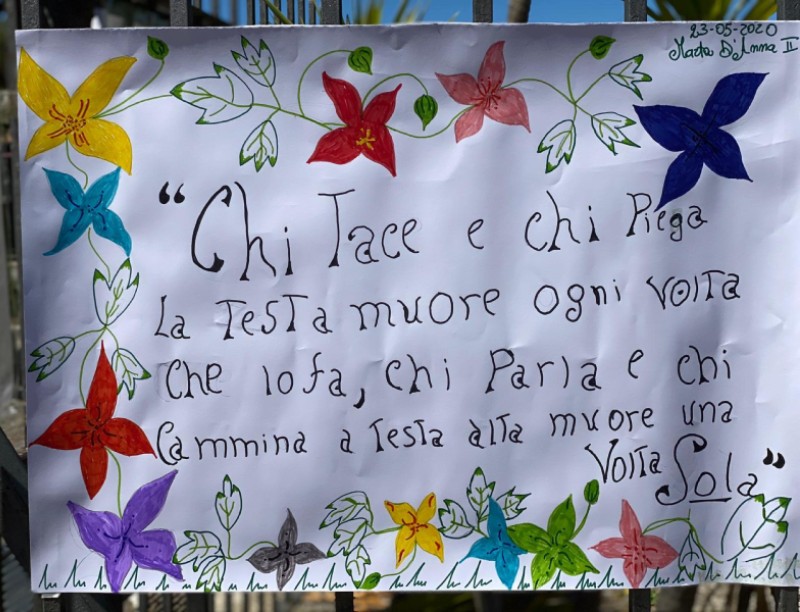 23-05-2020
Marta D'Anna II
“Chi Tace e chi Piega
La Testa muore ogni volta
Che lo fa, chi Parla e chi
Cammina a Testa alta muore una
Volta Sola”